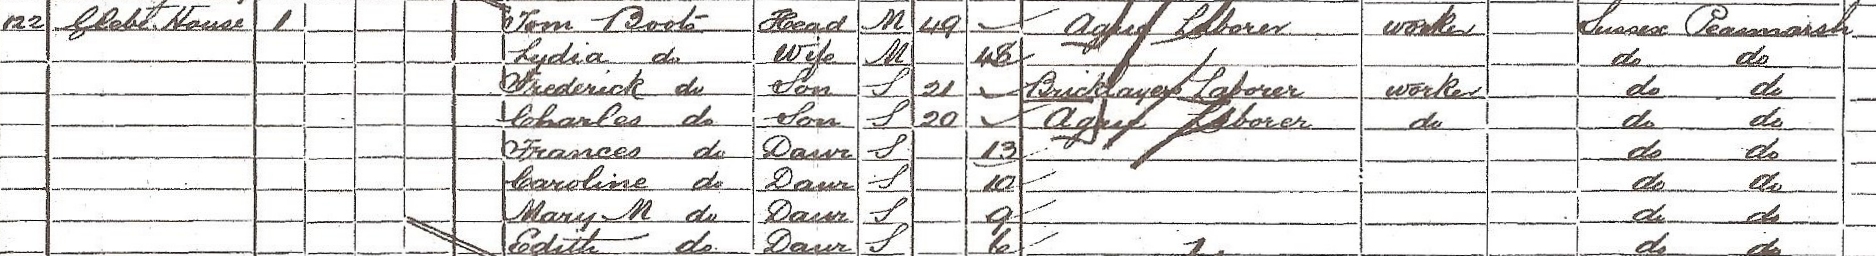 122 Glebe House 1 Tom Boots Head M 49 Agric Laborer worker Sussex Peasmarsh
Lydia do Wife M 48 do do
Frederick do Son S 21 Bricklayers Laborer worker do do
Charles do Son S 20 Agric Laborer do do do
Frances do Daur S 13 do do
Caroline do Daur S 10 do do
Mary M do Daur S 9 do do
Edith do Daur S 6 do do